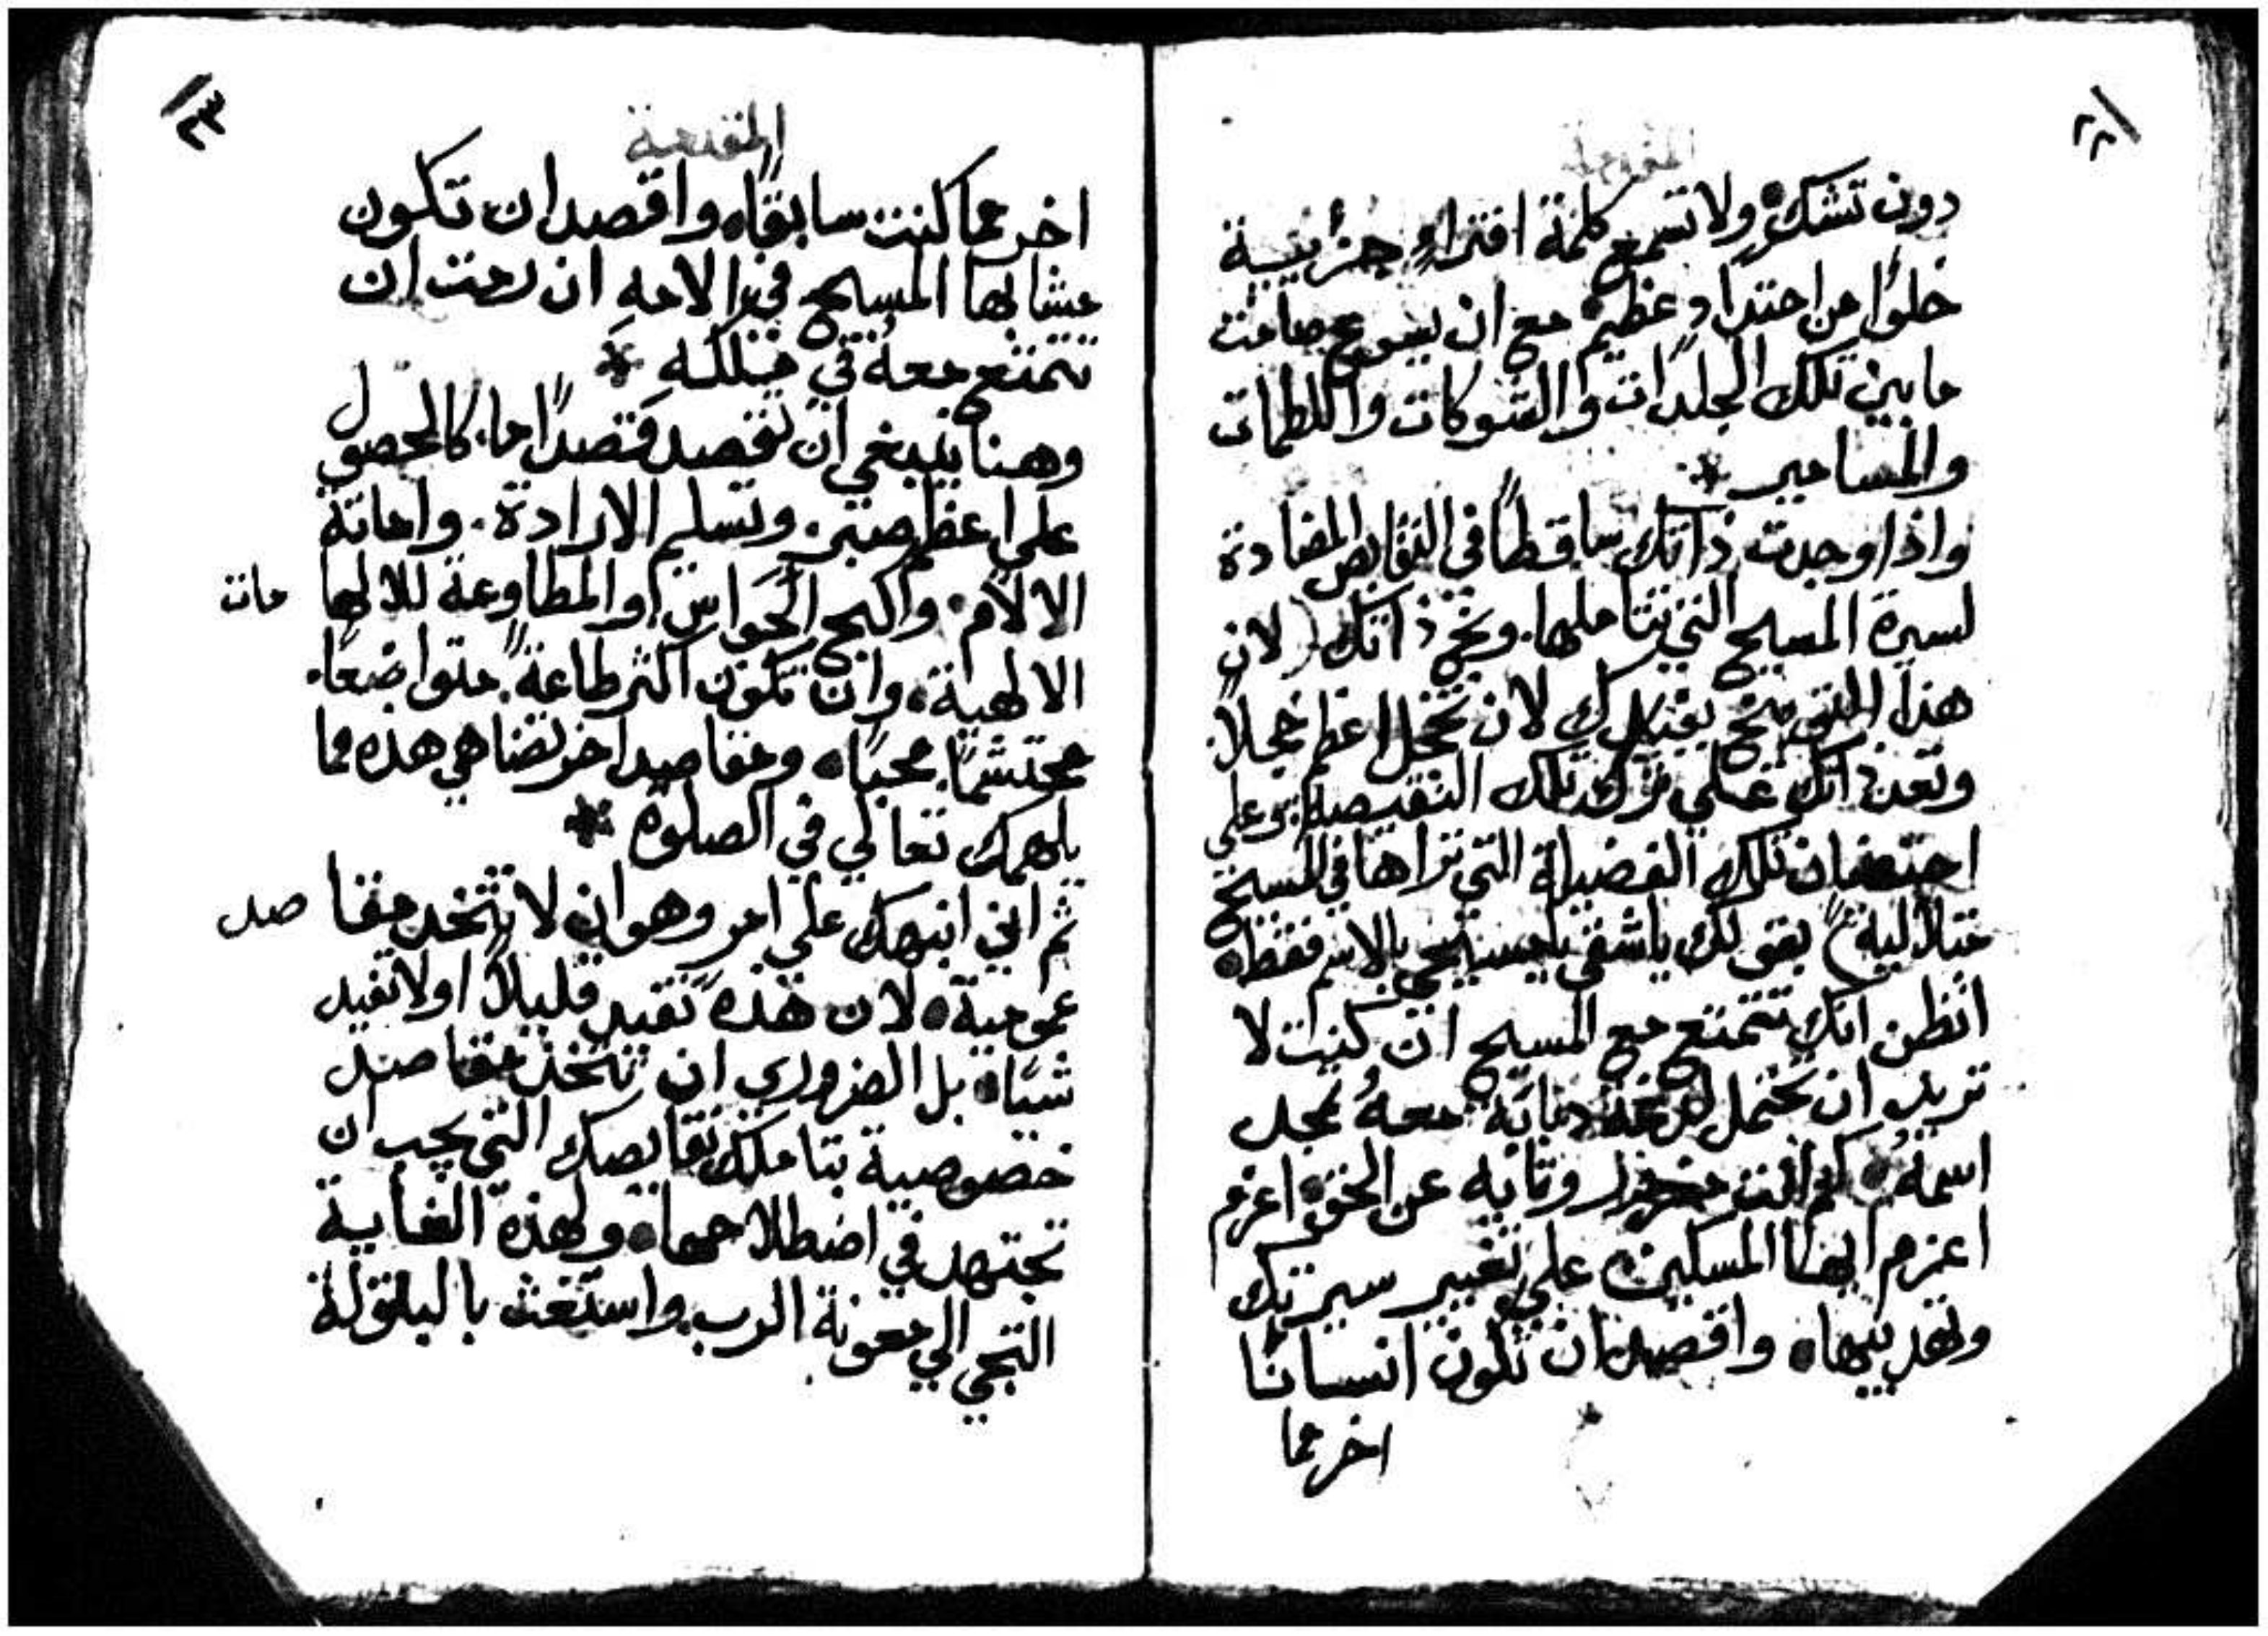 المقدمة
دون تشكٍ ولا تسمع كلمة افتراءٍ جزئيية
خلوًا من احتدادٍ عظيم مع ان يسوع صامت
ما بين تلك الجلدات والشوكات واللطمات
والمسامير *
واذا وجدت ذاتك ساقطًا في النقايص المضادة
لسيرة المسيح التي تتاملها. وبخ ذاتك (لان
هذا التوبيخ يفيدك لان تخجل اعظم خجلاً.
وتعد ذاتك علي ترك تلك النقيصة اي علي
احتضان تلك الفضيلة التي تراها في المسيح
متلاليةً) بقولك يا شقي يا مسيحي بالاسم فقط
اتظن انك تتمتع مع المسيح ان كنت لا
تريد ان تحتمل اهانة معهُ لمجد
اسمهُ كم انت وتايه عن الحق اعزم
اعزم ايها المسكين علي تغيير سيرتك
وتهذيبها واقصد ان تكون انسانًا
اخر مما
١٣
المقدمة
اخر مما كنت سابقًا واقصد ان تكون
مشابها المسيح في الامهِ ان رمت ان
تتمتع معهُ في ملكهِ *
وهنا ينبغي ان تقصد قصدًا ما. كالحصول
علي اعظم صبرٍ. وتسليم الارادة. واماتة
الالام. والبح الحواس او المطاوعة للالهامات
الالهية. وان تكون اكثر طاعةً. متواضعًا.
محتشمًا. محبًا ومقاصد اخر تضاهي هذه مما
يلهمك تعالي في الصلوة *
ثم اني انبهك علي امر وهو ان لا تتخذ مقاصد
عمومية لان هذه تفيد قليلاً او لا تفيد
شيًا بل الضروري ان تتخذ مقاصد
خصوصية بتاملك نقايصك التي يجب ان
تجتهد في اضطلاحها ولهذه الغاية
التجي الي معونة الرب. واستغث بالبتولة